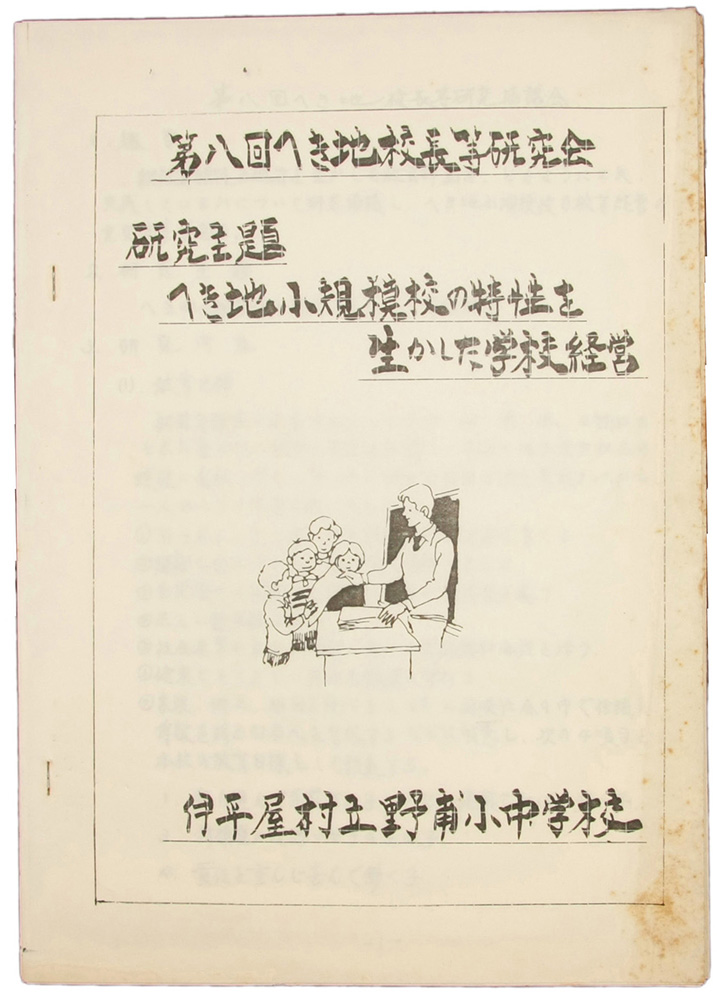 第八回へき地校長等研究会
研究主題
へき地小規模校の特性を
生かした学校経営
伊平屋村立野甫小中学校